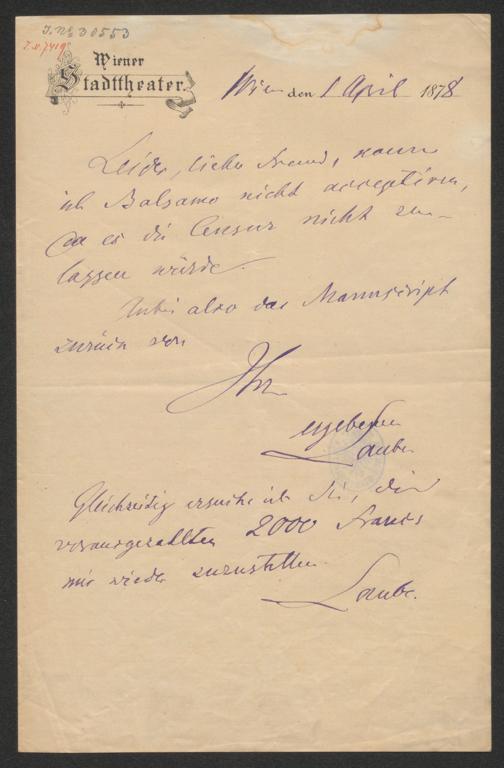 J. N. 30553
J. N. 7419
Wiener
Stadttheater.
Wien den 1 April 1878
Leider, lieber Freund, kann
ich Balsamo nicht acceptiren,
da es die Censur nicht zu-
lassen würde.
Anbei also das Manuscript
zurück von
Ihrem
ergebenen
Laube
Gleichzeitig ersuche ich Sie, die
vorausgezahlten 2000 Francs
mir wieder zuzustellen.
Laube.